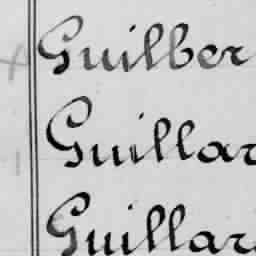 Guilber
Guillar
Guillar